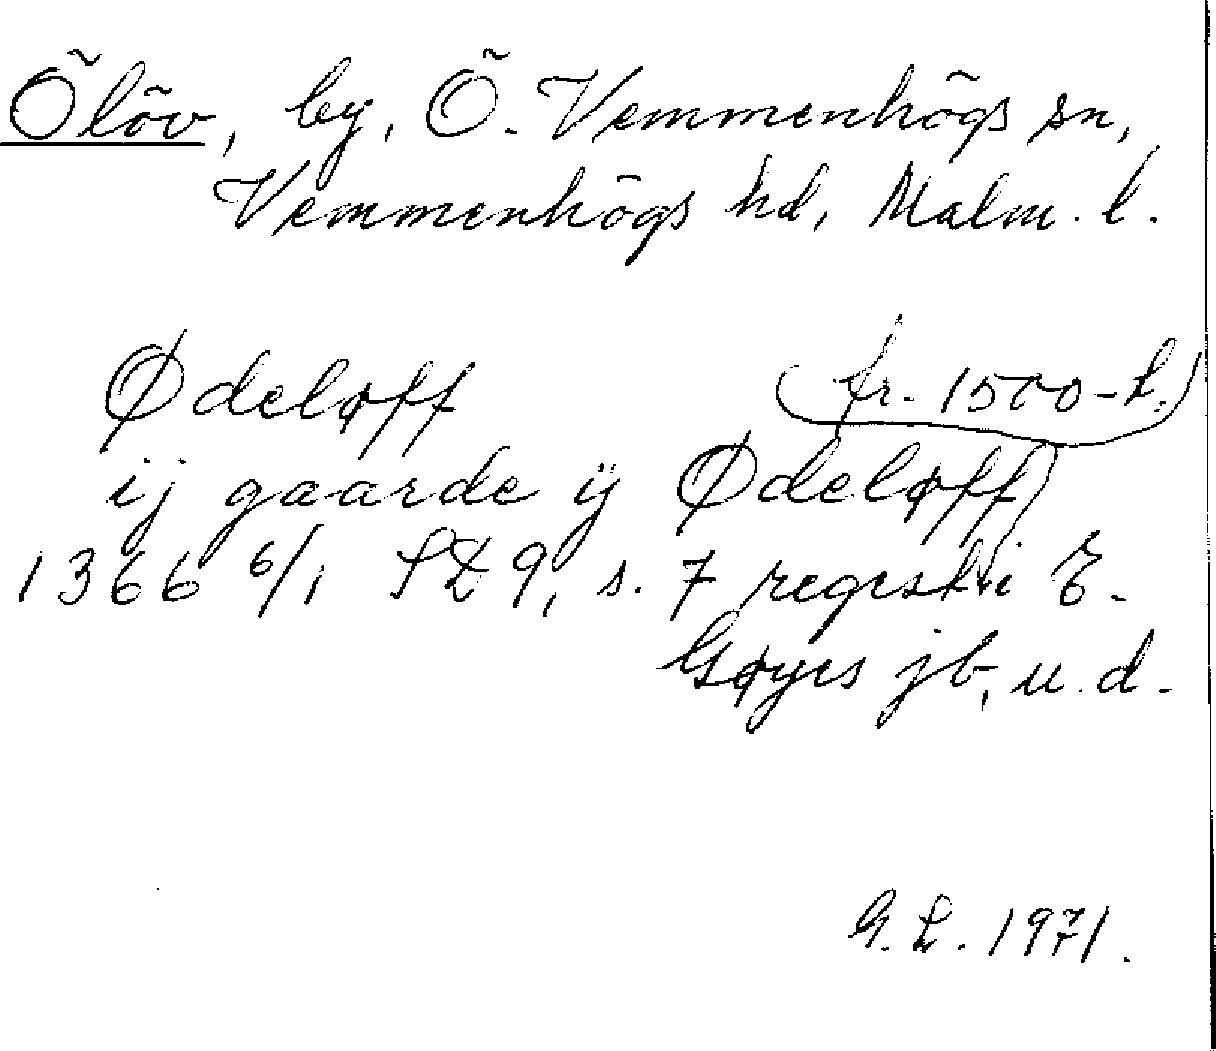 Õlõv, by, Õ. Vemmenhõgs sn,
Vemmenhõgs hd, Malm. l.
Ødeløff (fr. 1500-t.)
ij gaarde ÿ Ødeløff
1366 6/1 SD 9, s. 7 regest i E.
Gøyes jb, u.d.
G.L. 1971.